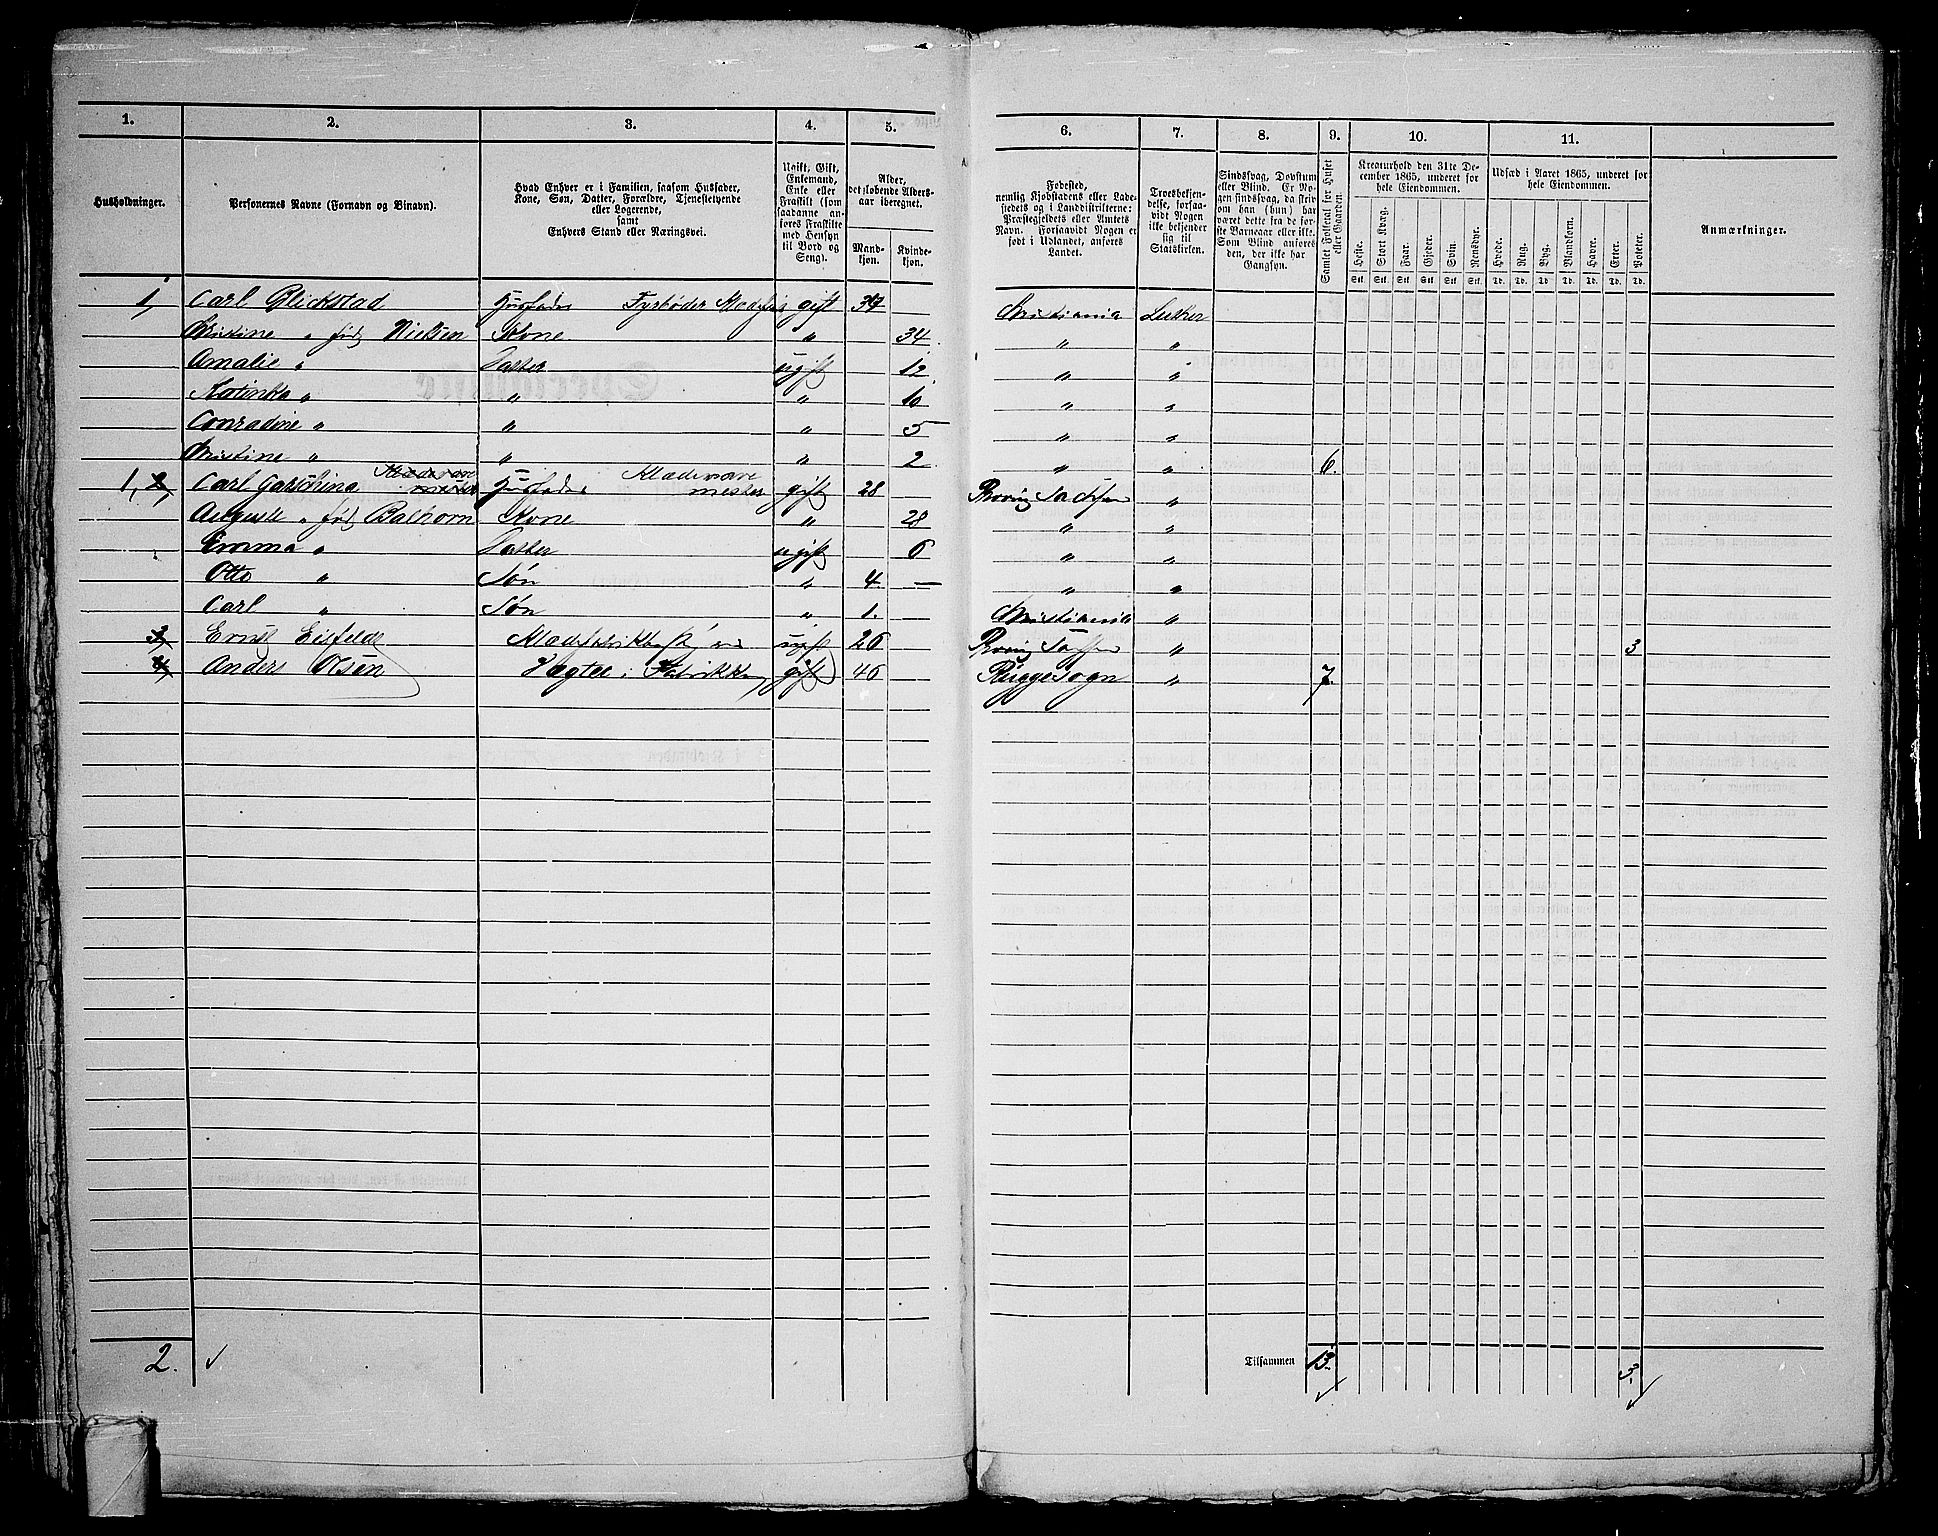 1. 2. 3. 4. 5. 6. 7. 8. 9. 10. 11.
Husholdninger.
Personernes Navne (Fornavn og Binavn).
Hvad Enhver er i Familien, saasom Husfader,
Kone, Søn, Datter, Forældre, Tjenestetyende
eller Logerende,
samt
Enhvers Stand eller Næringsvei.
Ugift, Gift,
Enkemand,
Enke eller
Fraskilt (som
saadanne an-
føres Fraskilte
med Hensyn
til Bord og
Seng).
Alder,
det løbende Alders-
aar iberegnet.
Mand-
kjøn.
Kvinde-
kjøn.
Fødested,
nemlig Kjøbstadens eller Lade-
stedets og i Landdistrikterne:
Præstegjeldets eller Amtets
Navn. Forsaavidt Nogen er
født i Udlandet, anføres
Landet.
Troesbekjen-
delse, forsaa-
vidt Nogen
ikke bekjender
sig til
Statskirken.
Sindssvag, Døvstum
eller Blind. Er No-
gen sindssvag, da skriv
om han (hun) har
været dette fra de før-
ste Barneaar eller ikke.
Som Blind anføres
den, der ikke har
Gangsyn.
Samlet Folketal for Huset
eller Gaarden.
Kreaturhold den 31te De-
cember 1865, underet for
hele Eiendommen.
Heste. Stort Kvæg. Faar. Gjeder. Svin. Rensdyr.
Stk. Stk. Stk. Stk. Stk. Stk.
Udsæd i Aaret 1865, underet for
hele Eiendommen.
Hvede. Rug. Byg. Blandkorn. Havre. Erter. Poteter.
Td. Td. Td. Td. Td. Td. Td.
Anmærkninger.
1, Carl Blickstad Husfader Fyrbøder gift 37 Christiania Luther
Christine " født Nielsen Kone " 34. " "
Amalie " Datter ugift 12. " "
Kotinka " " " 10 " "
Conradine " " " 5 " "
Christine " " " 2 " " 6.
1, 2, Carl Garschina Husfader Mademaremester gift 28 Sachsen "
Auguste " født Balhorn Kone " 28 " "
Emma " Datter ugift 6 " "
Otto " Søn " 4 — " "
Carl " Søn " 1. Christiania "
3, Ernst Eisfeldt ugift 26 "  3
4, Anders Olsen Vægter i gift 46 Rygge Sogn " 7.
2. ✓ Tilsammen 13. ✓ 3. ✓